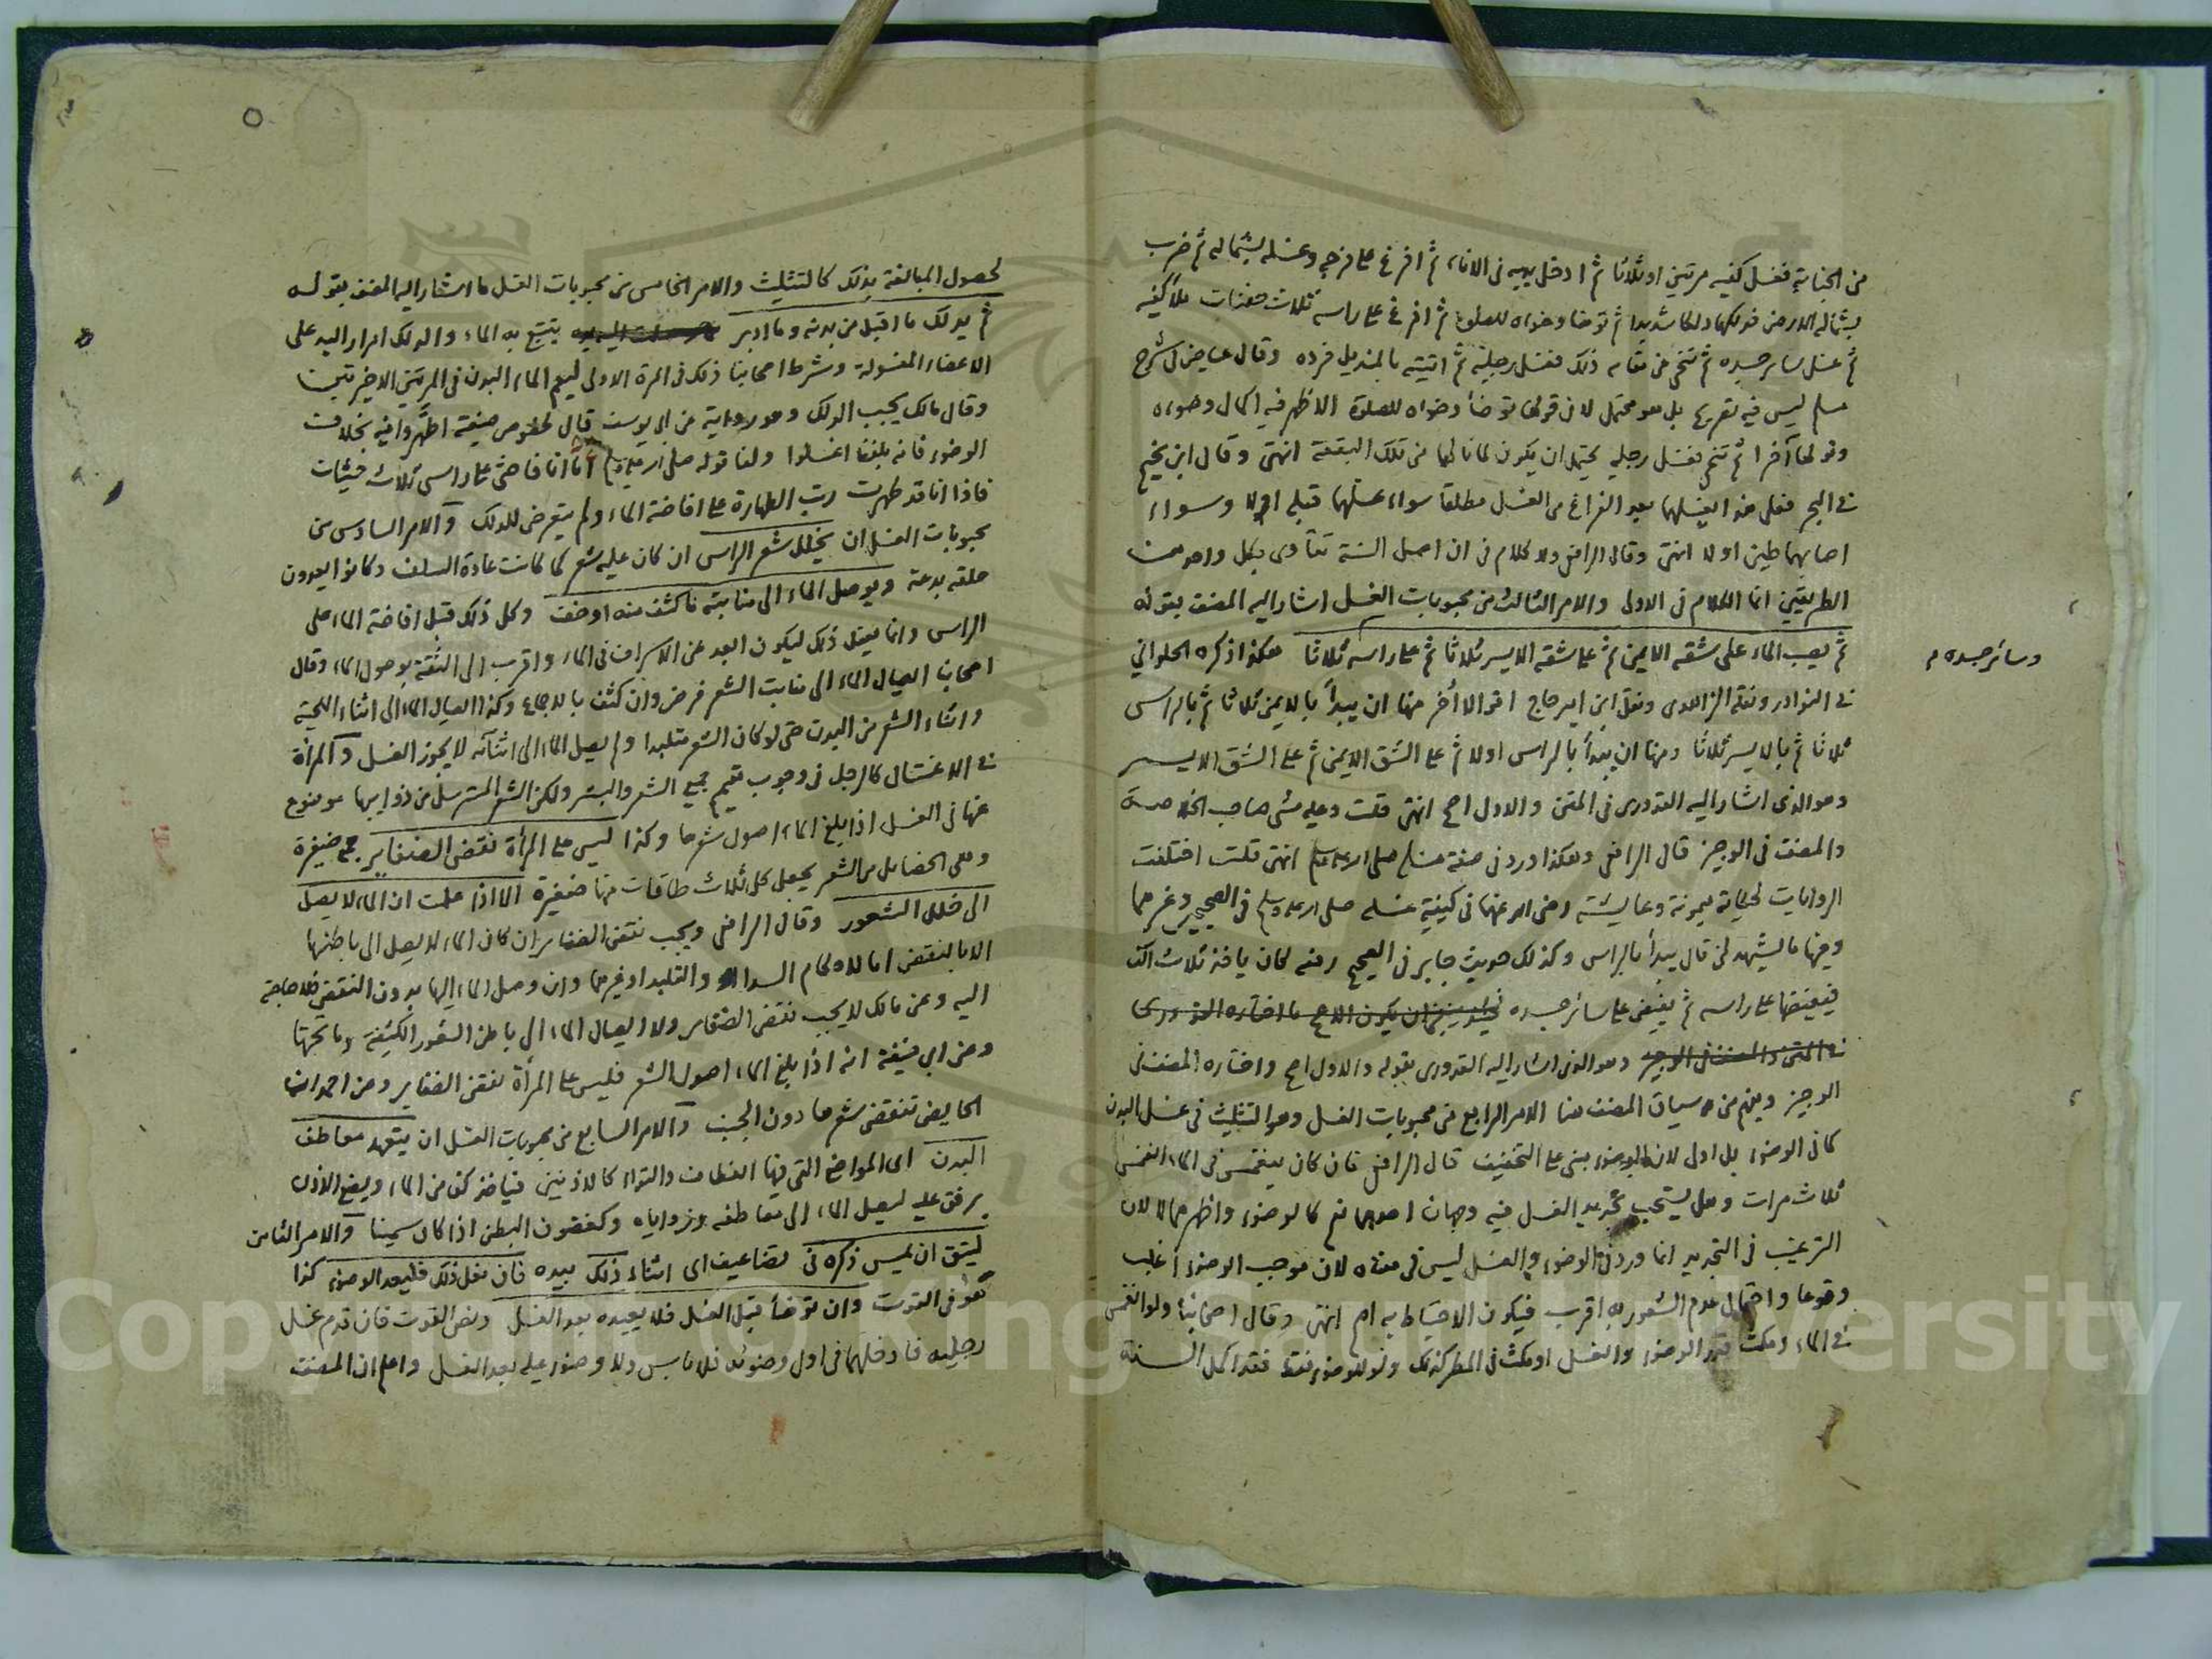 من الجنابة فغسل كفيه مرتين او ثلاثا ثم ادخل يديه في الاناء ثم افرغ على فرجه وغسله بشماله ثم ضرب
بشماله الارض فدلكها دلكا شديدا ثم توضا وضوءه للصلوة ثم افرغ على راسه ثلاث حفنات ملأ كفيه
ثم غسل سائر جسده ثم تنحى عن مقامه ذلك فغسل رجليه ثم اتيته بالمنديل فرده وقال عياض في شرح
مسلم ليس فيه تصريح بل هو محتمل لان قولها توضأ وضوءه للصلوة الاظهر فيه اكمال وضوءه
وقولها آخرا ثم تنحى فغسل رجليه يحتمل ان يكون لما نالهما من تلك البقعة انتهى وقال ابن نجيم
في البحر فعلى هذا يغسلهما بعد الفراغ من الغسل مطلقا سواء غسلهما قبله او لا وسواء
اصابهما طين او لا انتهى وقال الرافعي ولا كلام في ان اصل السنة تتادى بكل واحد من
الطريقين انما الكلام في الاولى والامر الثالث من محبوبات الغسل اشار اليه المصنف بقوله
ثم يصب الماء على شقه الايمن ثم على شقه الايسر ثلاثا ثم على راسه ثلاثا هكذا ذكره الحلواني
وسائر جسده
في النوادر ونقله الزاهدى ونقل ابن امير حاج اقوالا أخر منها ان يبدأ بالايمن ثلاثا ثم بالراس
ثلاثا ثم بالايسر ثلاثا ومنها ان يبدأ بالراس اولا ثم على الشق الايمن ثم على الشق الايسر
وهو الذى اشار اليه القدورى في المتن والاول اصح انتهى قلت وعليه مشى صاحب الخلاصة
والمصنف في الوجيز قال الرافعي وهكذا ورد في صفة غسله صلى الله عليه وسلم انتهى قلت اختلفت
الروايات لحكاية ميمونة وعايشة رضى الله عنهما في كيفية غسله صلى الله عليه وسلم في الصحيحين وغيرهما
وفيها ما يشهد لمن قال يبدأ بالراس وكذلك حديث جابر في الصحيح رفعه كان ياخذ ثلاث اكف
فيفيضها على راسه ثم يفيض على سائر جسده فينبغي ان يكون الاصح ما اختاره القدورى
في المتن والمصنف في الوجيز وهو الذى اشار اليه القدورى بقوله والاول اصح واختاره المصنف في
الوجيز ويفهم من سياق المصنف هنا الامر الرابع من محبوبات الغسل وهو التثليث في غسل البدن
كما في الوضوء بل اولى لان الوضوء مبنى على التخفيف قال الرافعي فان كان ينغمس في الماء انغمس
ثلاث مرات وهل يستحب تجديد الغسل فيه وجهان احدهما نعم كالوضوء واظهرهما لا لان
الترغيب في التجديد انما ورد في الوضوء والغسل ليس في معناه لان موجب الوضوء اغلب
وقوعا واحتمال عدم الشعور به اقرب فيكون الاحتياط به اهم انتهى وقال اصحابنا ولو انغمس
في الماء ومكث قدر الوضوء والغسل او مكث في المطر كذلك ولو للوضوء فقط فقد اكمل السنة
لحصول المبالغة بذلك كالتثليث والامر الخامس من محبوبات الغسل ما اشار اليه المصنف بقوله
ثم يدلك ما اقبل من بدنه وما ادبر يتتبع به الماء والدلك امرار اليد على
الاعضاء المغسولة وشرط اصحابنا ذلك في المرة الاولى ليعم الماء البدن في المرتين الاخيرتين
وقال مالك يجب الدلك وهو رواية عن ابى يوسف قال لخصوص صيغة اطهروا فيه بخلاف
الوضوء فانه بلفظ اغسلوا ولنا قوله صلى الله عليه وسلم أما انا فاحثى على راسى ثلاث حثيات
فاذا انا قد طهرت رتب الطهارة على افاضة الماء ولم يتعرض للدلك والامر السادس من
محبوبات الغسل ان يخلل شعر الراس ان كان عليه شعر كما كانت عادة السلف وكانوا يعدون
حلقه بدعة ويوصل الماء الى منابته ما كثف منه او خف وكل ذلك قبل افاضة الماء على
الراس وانما يفعل ذلك ليكون ابعد عن الاسراف في الماء واقرب الى الثقة بوصول الماء وقال
اصحابنا ايصال الماء الى منابت الشعر فرض وان كثف بالاجماع وكذا ايصال الماء الى اثناء اللحية
واثناء الشعر من البدن حتى لو كان الشعر متلبدا ولم يصل الماء الى اثنائه لا يجوز الغسل والمرأة
في الاغتسال كالرجل في وجوب تعميم جميع الشعر والبشر ولكن الشعر المسترسل من ذوايبها موضوع
عنها في الغسل اذا بلغ الماء اصول شعرها وكذا ليس على المرأة نقض الضفاير جمع ضفيرة
وهى الخصايل من الشعر يجعل كل ثلاث طاقات منها ضفيرة الا اذا علمت ان الماء لا يصل
الى خلال الشعور وقال الرافعي ويجب نقض الضفاير ان كان الماء لا يصل الى باطنها
الا بالنقض اما لاحكام الشد او التلبد او غيرهما وان وصل الماء اليها بدون النقض فلا حاجة
اليه وعن مالك لا يجب نقض الضفاير ولا ايصال الماء الى باطن الشعور الكثيفة وما تحتها
وعن ابى حنيفة انه اذا بلغ الماء اصول الشعر فليس على المرأة نقض الضفاير وعن احمد ان
الحايض تنقض شعرها دون الجنب والامر السابع من محبوبات الغسل ان يتعهد معاطف
البدن اى المواضع التى فيها انعطاف والتواء كالاذنين فياخذ كفا من الماء ويضع الاذن
برفق عليه ليصل الماء الى معاطفه وزواياه وكغضون البطن اذا كان سمينا والامر الثامن
ليتق ان يمس ذكره في تضاعيف اى اثناء ذلك بيده فان فعل ذلك فليعد الوضوء كذا
هو في القوت وان توضأ قبل الغسل فلا يعيده بعد الغسل ونص القوت فان قدم غسل
رجليه فادخلهما في اول وضوئه فلا باس ولا وضوء عليه بعد الغسل واعلم ان المصنف
Copyright © King Saud University